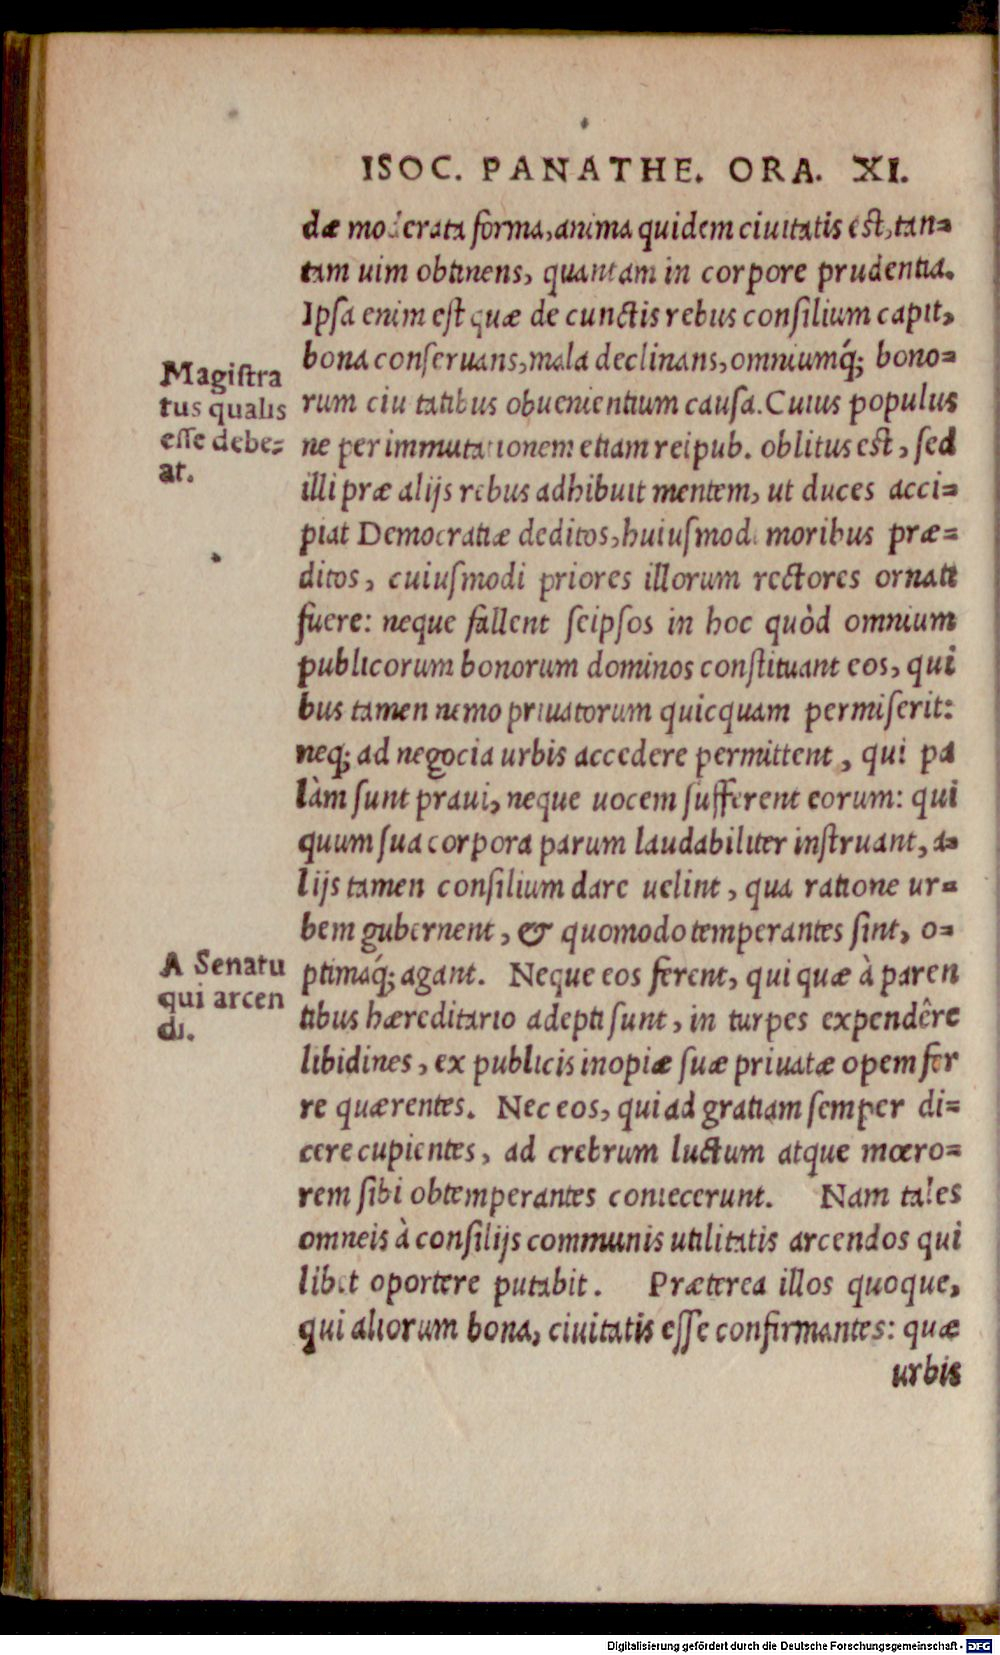 ISOC. PANATHE. ORA. XI.
dæ moderata forma, anima quidem ciuitatis est, tan=
tam uim obtinens, quantam in corpore prudentia.
Ipsa enim est quæ de cunctis rebus consilium capit,
bona conseruans, mala declinans, omniumq́; bono=
rum ciu tatibus obuenientium causa. Cuius populus
ne per immutationem etiam reipub. oblitus est, sed
illi præ alijs rebus adhibuit mentem, ut duces acci=
piat Democratiæ deditos, huiusmodi moribus præ=
ditos, cuiusmodi priores illorum rectores ornati
fuere: neque fallent seipsos in hoc quòd omnium
publicorum bonorum dominos constituant eos, qui
bus tamen nemo priuatorum quicquam permiserit:
neq; ad negocia urbis accedere permittent, qui pa
làm sunt praui, neque uocem sufferent eorum: qui
quum sua corpora parum laudabiliter instruant, a=
lijs tamen consilium dare uelint, qua ratione ur=
bem gubernent, & quomodo temperantes sint, o=
ptimaq́; agant. Neque eos ferent, qui quæ à paren
tibus hæreditario adepti sunt, in turpes expendêre
libidines, ex publicis inopiæ suæ priuatæ opem fer
re quærentes. Nec eos, qui ad gratiam semper di=
cere cupientes, ad crebrum luctum atque mœro=
rem sibi obtemperantes coniecerunt. Nam tales
omneis à consilijs communis utilitatis arcendos qui
libet oportere putabit. Præterea illos quoque,
qui aliorum bona, ciuitatis esse confirmantes: quæ
urbis
Magistra
tus qualis
esse debe=
at.
A Senatu
qui arcen
di.
Digitalisierung gefördert durch die Deutsche Forschungsgemeinschaft - DFG